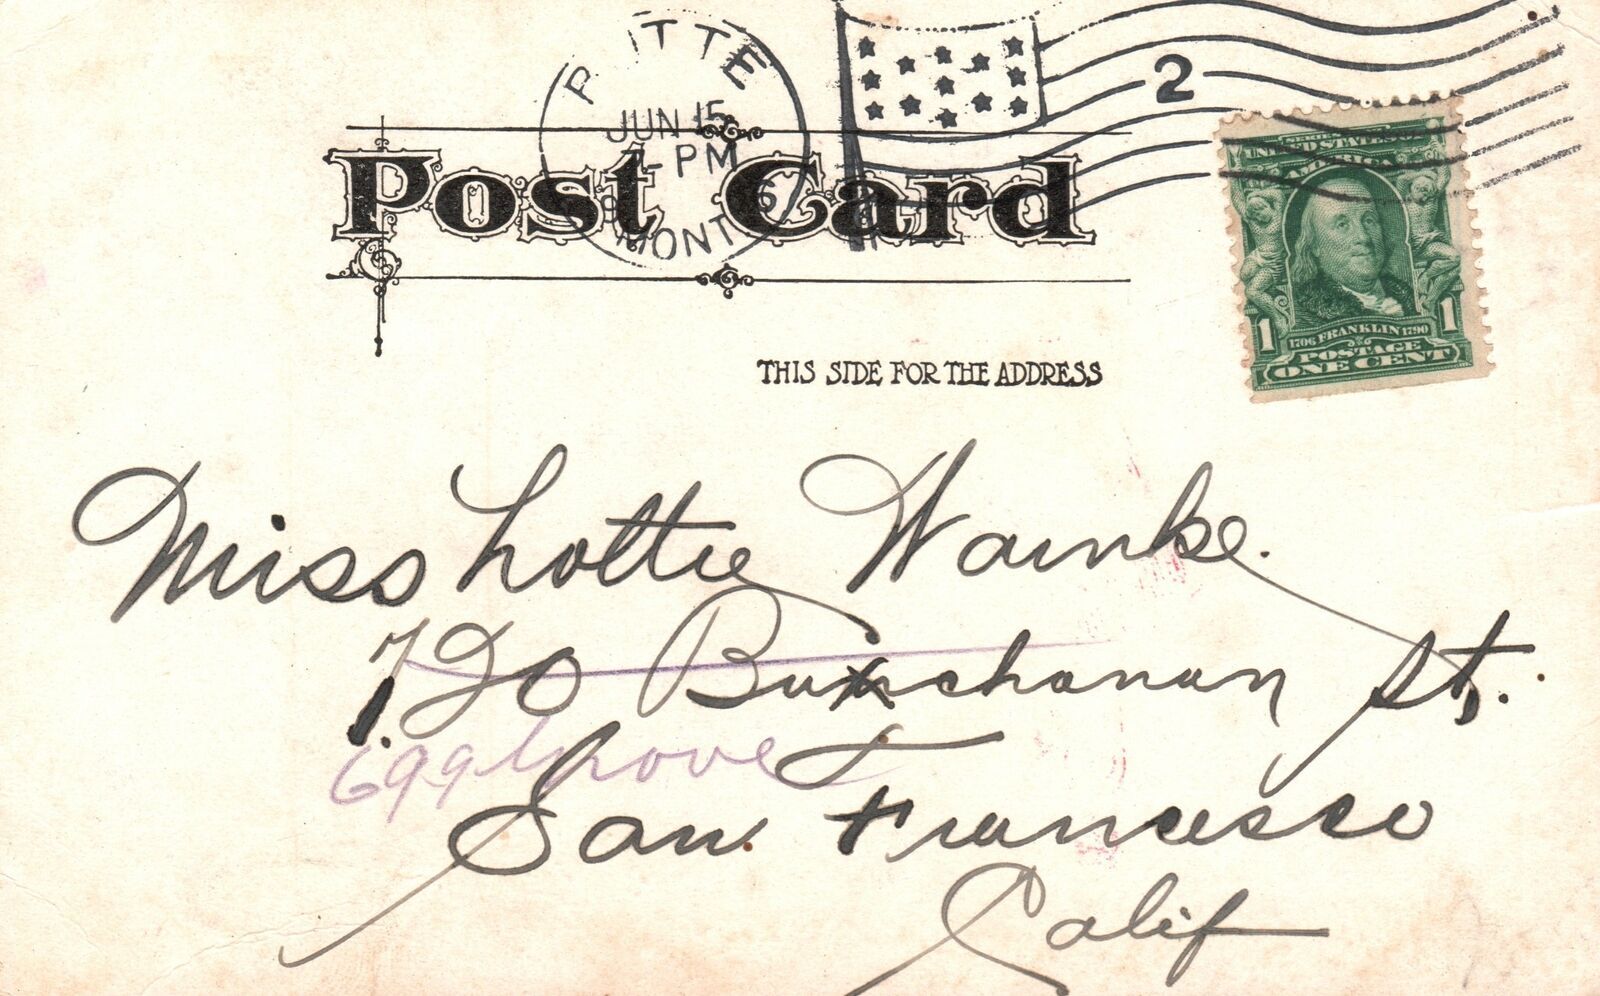 BUTTE
JUN 15
7-PM
MONT.
2
Post Card
UNITED STATES
AMERICA
1706 FRANKLIN 1790
1 1
POSTAGE
ONE CENT
THIS SIDE FOR THE ADDRESS
Miss Lottie Warnke.
720 Buchanan St.
699 Grove
San Francisco
Calif